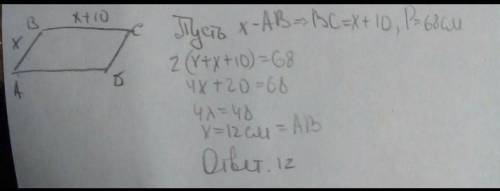 B x+10 C
x
A D
Пусть x-AB⇒BC=x+10, P=68см
2(x+x+10)=68
4x+20=68
4x=48
x=12см=AB
Ответ. 12